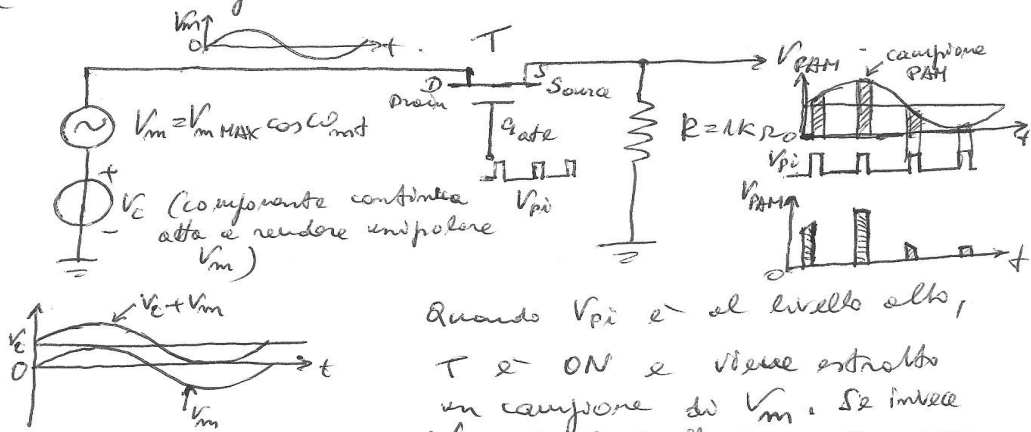 Vm
0
t
T
D
Drain
S
Source
gate
Vpi
Vm = Vm MAX cos ωmt
+
Vc (componente continua
-
atta a rendere unipolare
Vm)
R = 1kΩ
VPAM
campione
PAM
0
t
Vpi
VPAM
0
t
Vc + Vm
Vc
0
t
Vm
Quando Vpi è al livello alto,
T è ON e viene estratto
un campione di Vm. Se invece